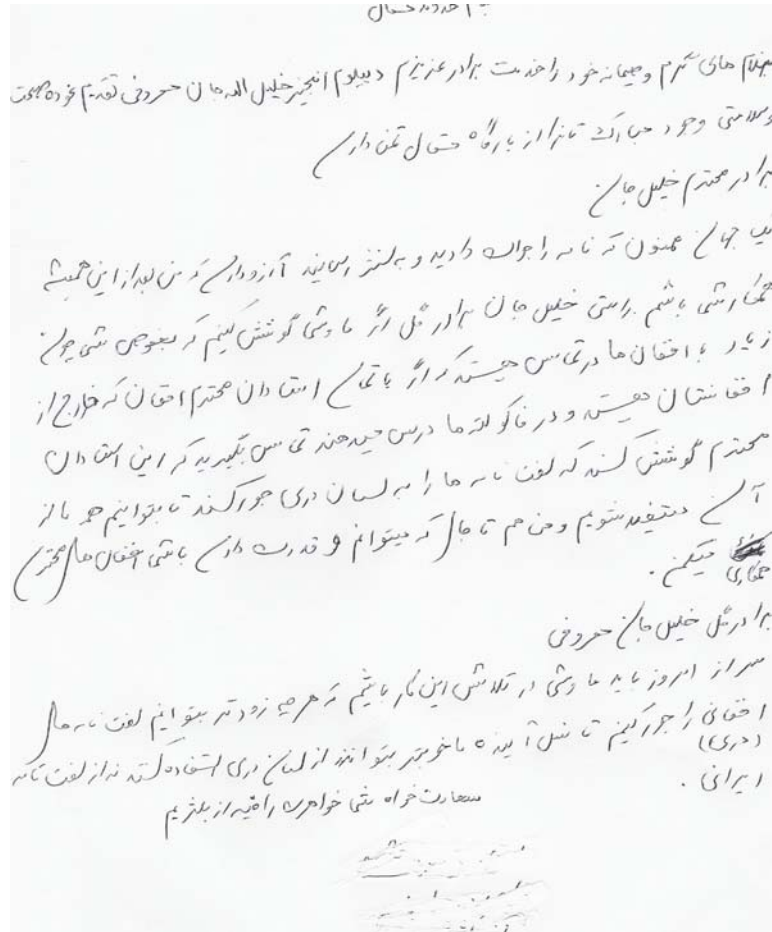 سلام های گرم و صمیمانه خود را خدمت برادر عزیزم دیپلوم انجنیر خلیل الله جان معروفی تقدیم نموده صحت
و سلامتی وجود مبارک تانرا از بارگاه متعال تمنی دارم
برادر محترم خلیل جان
یک جهان ممنون که نامه را جواب دادید و به نشر رساندید آرزو دارم که من بعد از این همیشه
همکار شما باشم راستی خلیل جان برادر گل اگر ما و شما کوشش کنیم که بخصوص شما چون
زیاد با افغان ها در تماس هستید که اگر با تمام استادان محترم افغان که خارج از
افغانستان هستند و در فاکولته ها درس میدهند تماس بگیرید که این استادان
محترم کوشش کنند که لغت نامه ها را به لسان دری جور کنند تا بتوانیم همه ما از
آن مستفید شویم و من هم تا جای که میتوانم و قدرت دارم با شما افغان های محترم
همکاری میکنم .
برادر گل خلیل جان معروفی
سر از امروز باید ما و شما در تلاش این کار باشیم که هر چه زودتر بتوانیم لغت نامه های
افغانی (دری) را جور کنیم تا نسل آینده ما خوبتر بتوانند از لسان دری استفاده کنند نه از لغت نامه
ایرانی .
سعادت خواه شما خواهرت راضیه از بلژیم